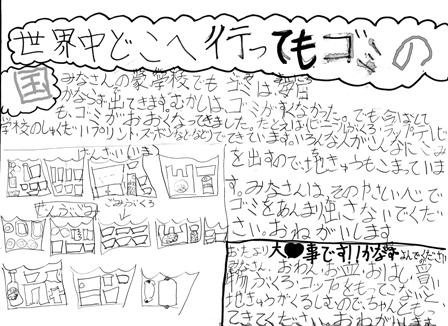 世界中どこへ行ってもゴミの
国
みなさんの家、学校でも ゴミは、毎日
かならず出てきます。むかしは、ゴミがすくなかった。でも今はとて
も、ゴミがおおくなってきました。たとえば、ビニールぶくろ・ラップ
学校のしゅくだいプリント・スポンなどなどでできています。いろんな人がこんなにゴミ
を出すので、地きゅうもこまっていま
す。みなさんは、そのやさしい心で、
ゴミをあんまり出さないでくだ
さい。おねがいします
ごみぶくろ
おたより 大♥事です!!かならずよんでください
みなさん、おわん、お皿、おはし、買い
物ぶくろ・コップをもって
地きゅうがくるしむので、ちゃんともっ
てきてください。おねがいします